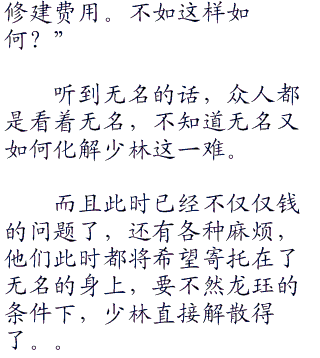 修建费用。不如这样如
何？”
听到无名的话，众人都
是看着无名，不知道无名又
如何化解少林这一难。
而且此时已经不仅仅钱
的问题了，还有各种麻烦，
他们此时都将希望寄托在了
无名的身上，要不然龙珏的
条件下，少林直接解散得
了。。